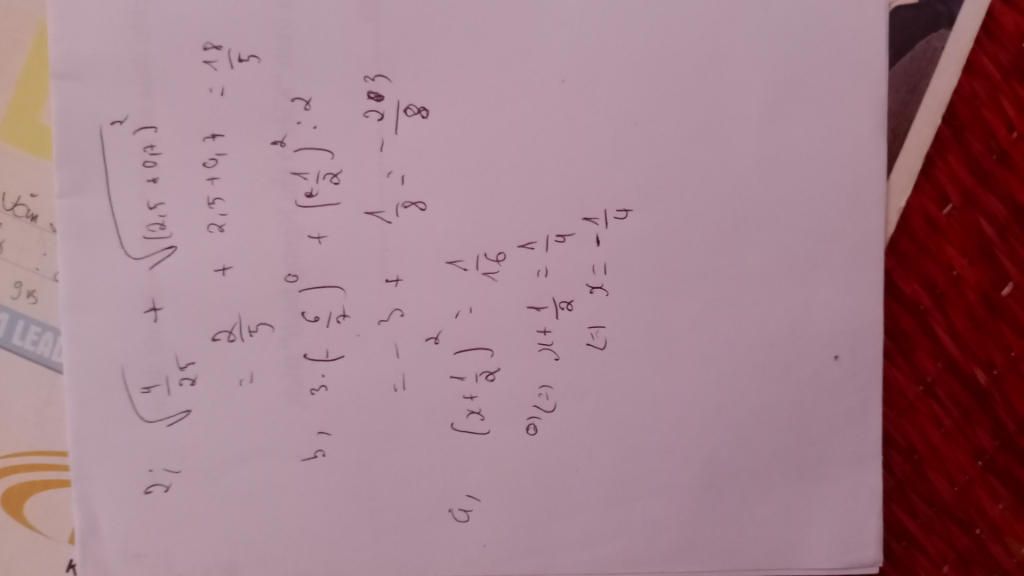 2; √(4/25) + √(2,5+0,7)²
= 2/5 + 2,5+0,7 = 18/5
b, 3.(-6/7)⁰ + (1/2)² : 2
= -3 + 1/8 = -203/8
a, (x+1/2)² = 1/16
<=> x+1/2 = 1/4
<=> x = -1/4
Văn
LEAD